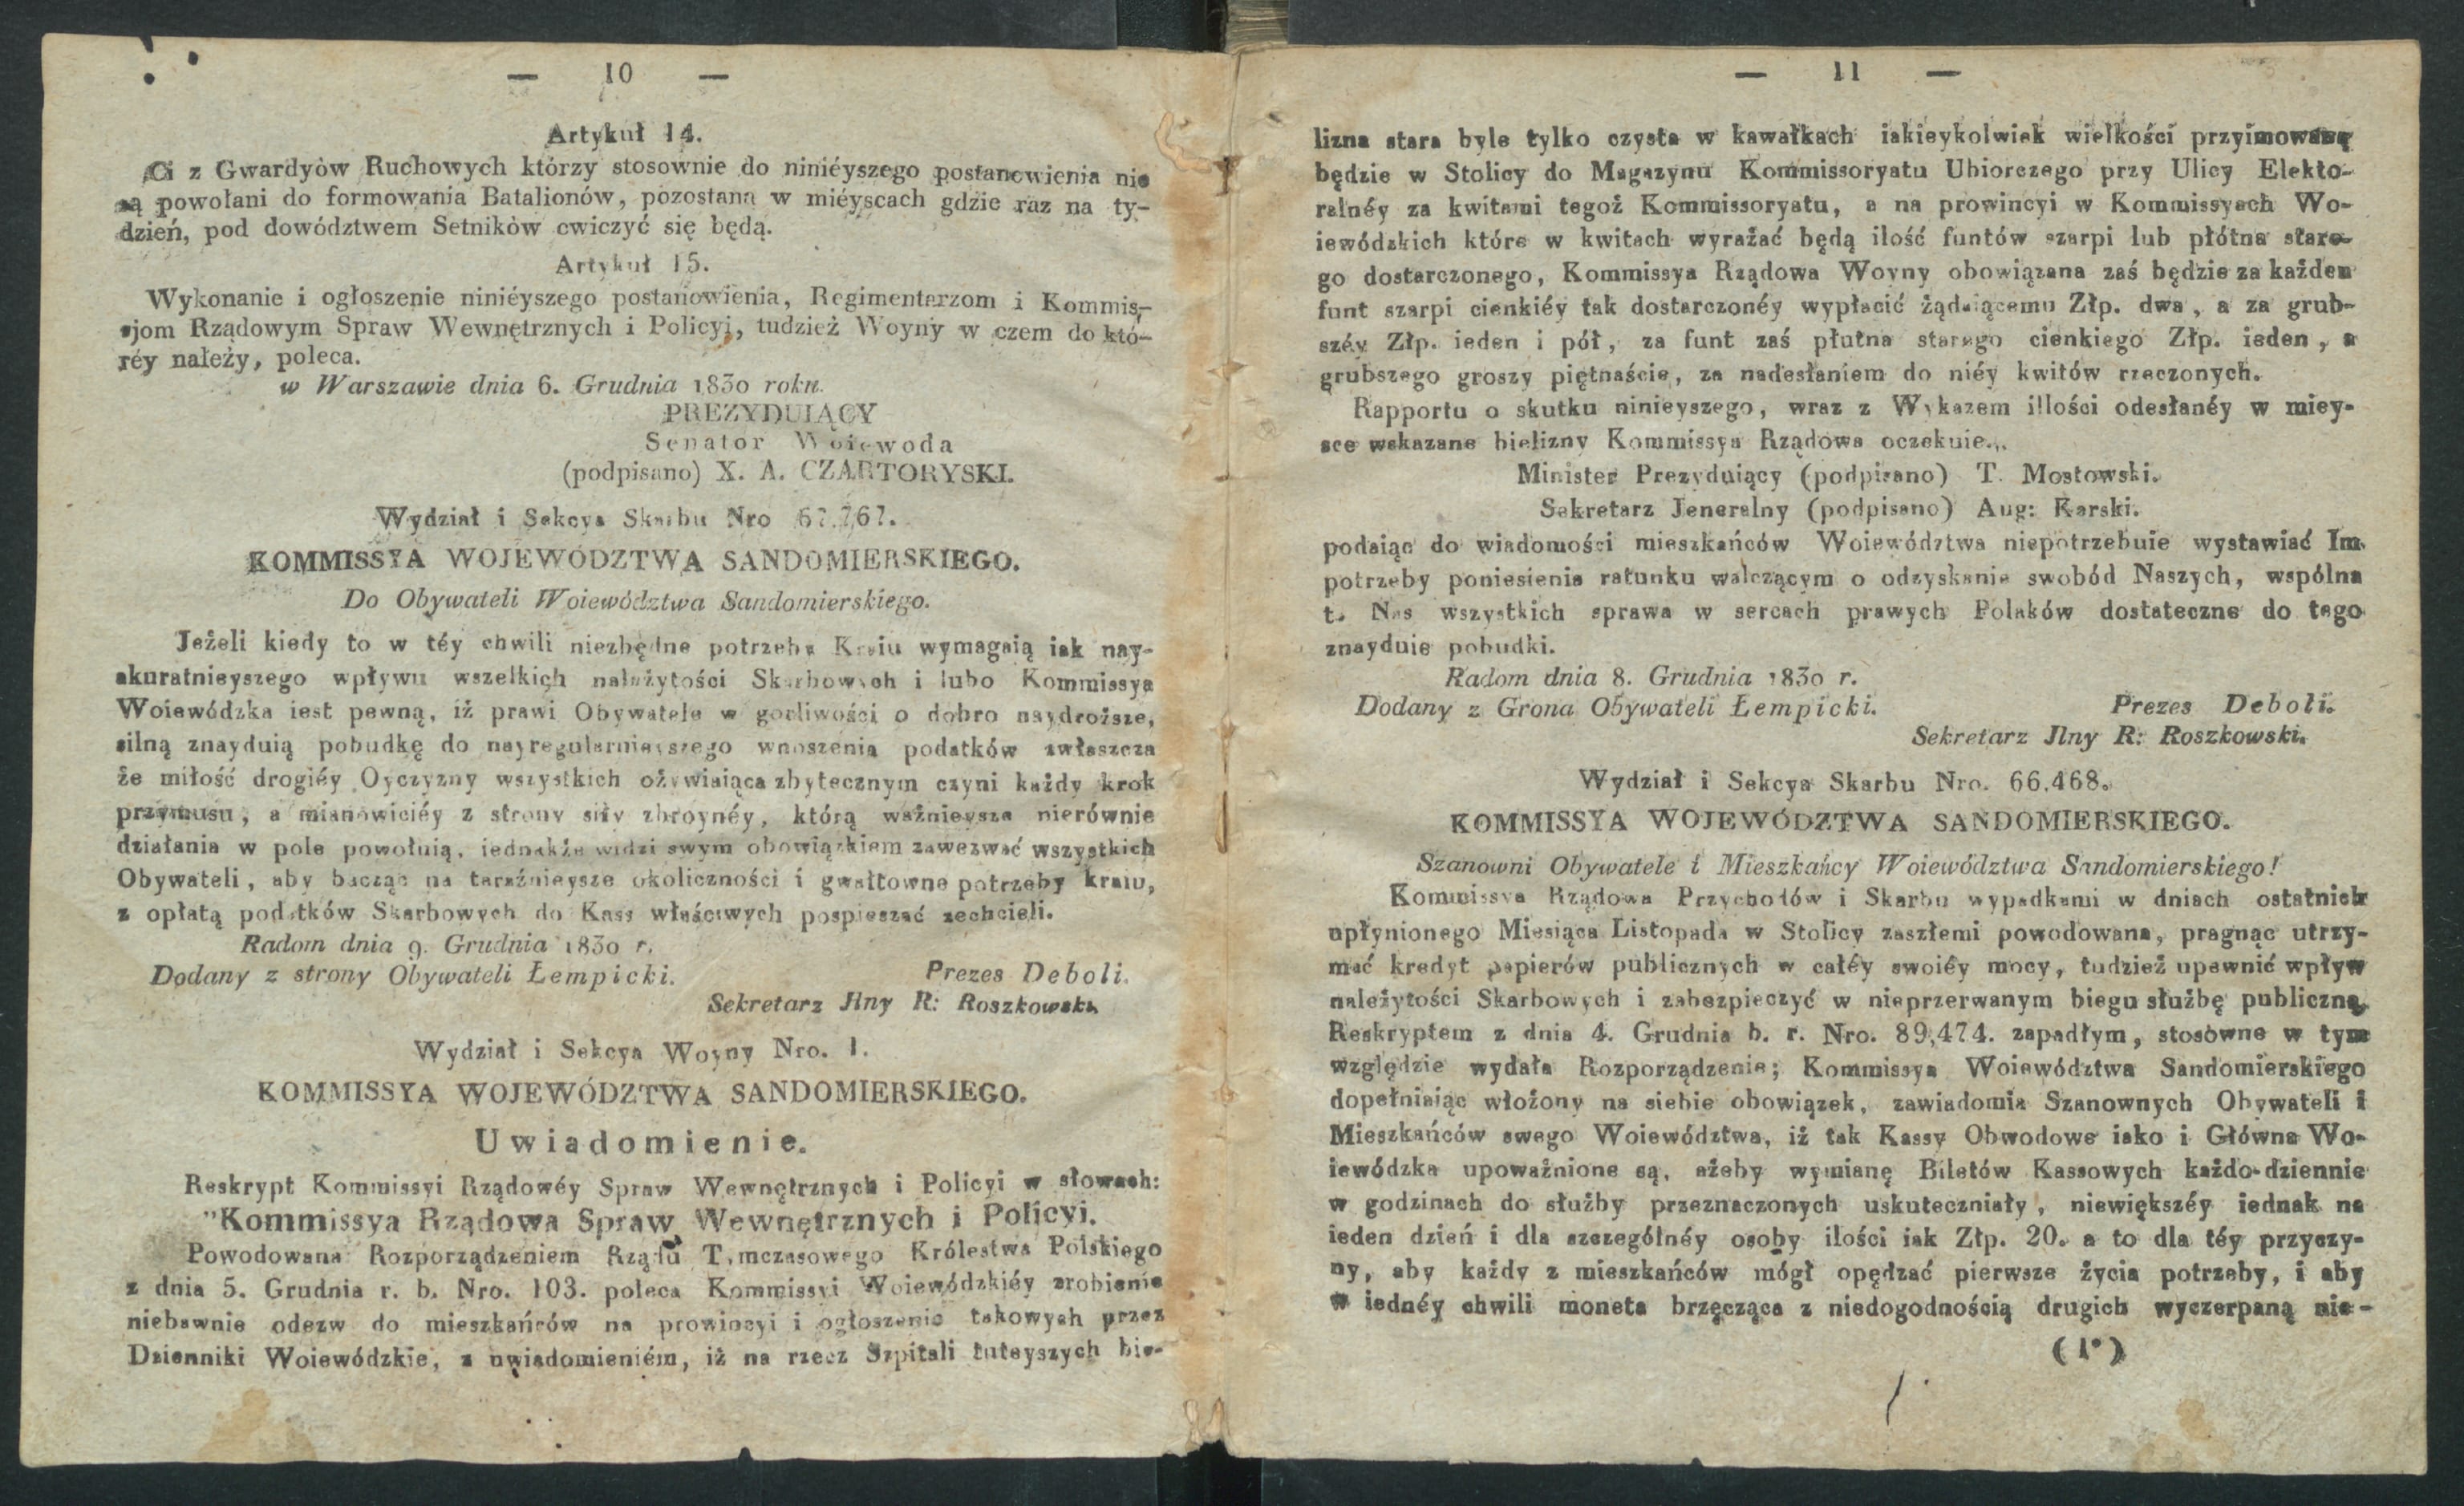 — 10 —
Artykuł 14.
Ci z Gwardyòw Ruchowych którzy stosownie do niniéyszego postanowienia nie
są powołani do formowania Batalionów, pozostaną w miéyscach gdzie raz na ty-
dzień, pod dowództwem Setników cwiczyć się będą.
Artykuł 15.
Wykonanie i ogłoszenie niniéyszego postanowienia, Regimentarzom i Kommis-
sjom Rządowym Spraw Wewnętrznych i Policyi, tudzież Woyny w czem do któ-
réy należy, poleca.
w Warszawie dnia 6. Grudnia 1830 roku.
PREZYDUIĄCY
Senator Woiewoda
(podpisano) X. A. CZARTORYSKI.
Wydział i Sekcya Skarbu Nro
KOMMISSYA WOJEWÓDZTWA SANDOMIERSKIEGO.
Do Obywateli Woiewództwa Sandomierskiego.
Jeżeli kiedy to w téy chwili niezbędne potrzeby Kraiu wymagaią iak nay-
akuratnieyszego wpływu wszelkich należytości Skarbowych i lubo Kommissya
Woiewódzka iest pewną, iż prawi Obywatele w gorliwości o dobro naydroższe,
silną znayduią pobudkę do nayregularnieyszego wnoszenia podatków zwłaszcza
że miłość drogiéy Oyczyzny wszystkich ożywiaiąca zbytecznym czyni każdy krok
przymusu, a mianowiciéy z strony siły zbroynéy, którą ważnieysze nierównie
działania w pole powołuią, iednakże widzi swym obowiązkiem zawezwać wszystkich
Obywateli, aby bacząc na teraźnieysze okoliczności i gwałtowne potrzeby kraiu,
z opłatą podatków Skarbowych do Kass właściwych pospieszać zechcieli.
Radom dnia 9. Grudnia 1830 r.
Dodany z strony Obywateli Łempicki. Prezes Deboli.
Sekretarz Jlny R: Roszkowski.
Wydział i Sekcya Woyny Nro. 1.
KOMMISSYA WOJEWÓDZTWA SANDOMIERSKIEGO.
Uwiadomienie.
Reskrypt Kommissyi Rządowéy Spraw Wewnętrznych i Policyi w słowach:
"Kommissya Rządowa Spraw Wewnętrznych i Policyi.
Powodowana Rozporządzeniem Rządu Tymczasowego Królestwa Polskiego
z dnia 5. Grudnia r. b. Nro. 103. poleca Kommissyi Woiewódzkiéy zrobienie
niebawnie odezw do mieszkańców na prowincyi i ogłoszenie takowych przez
Dzienniki Woiewódzkie, z uwiadomieniém, iż na rzecz Szpitali tuteyszych bie-
— 11 —
lizna stara byle tylko czysta w kawałkach iakieykolwiek wielkości przyimowaną
będzie w Stolicy do Magazynu Kommissoryatu Ubiorczego przy Ulicy Elekto-
ralnéy za kwitami tegoż Kommissoryatu, a na prowincyi w Kommissyach Wo-
iewódzkich które w kwitach wyrażać będą ilość funtów szarpi lub płótna stare-
go dostarczonego, Kommissya Rządowa Woyny obowiązana zaś będzie za każden
funt szarpi cienkiéy tak dostarczonéy wypłacić żądaiącemu Złp. dwa, a za grub-
széy Złp. ieden i pół, za funt zaś płutna starego cienkiego Złp. ieden, a
grubszego groszy piętnaście, za nadesłaniem do niéy kwitów rzeczonych.
Rapportu o skutku ninieyszego, wraz z Wykazem illości odesłanéy w miey-
sce wskazane bielizny Kommissya Rządowa oczekuie.„
Minister Prezyduiący (podpisano) T. Mostowski.
Sekretarz Jeneralny (podpisano) Aug: Karski.
podaiąc do wiadomości mieszkańców Woiewództwa niepotrzebuie wystawiać Im
potrzeby poniesienia ratunku walczącym o odzyskanie swobód Naszych, wspólna
t. Nas wszystkich sprawa w sercach prawych Polaków dostateczne do tego
znayduie pobudki.
Radom dnia 8. Grudnia 1830 r.
Dodany z Grona Obywateli Łempicki. Prezes Deboli.
Sekretarz Jlny R: Roszkowski.
Wydział i Sekcya Skarbu Nro. 66,468.
KOMMISSYA WOJEWÓDZTWA SANDOMIERSKIEGO.
Szanowni Obywatele i Mieszkańcy Woiewództwa Sandomierskiego!
Kommissya Rządowa Przychodów i Skarbu wypadkami w dniach ostatnich
upłynionego Miesiąca Listopada w Stolicy zaszłemi powodowana, pragnąc utrzy-
mać kredyt papierów publicznych w całéy swoiéy mocy, tudzież upewnić wpływ
należytości Skarbowych i zabezpieczyć w nieprzerwanym biegu służbę publiczną,
Reskryptem z dnia 4. Grudnia b. r. Nro. 89,474. zapadłym, stosowne w tym
względzie wydała Rozporządzenie; Kommissya Woiewództwa Sandomierskiego
dopełniaiąc włożony na siebie obowiązek, zawiadomia Szanownych Obywateli i
Mieszkańców swego Woiewództwa, iż tak Kassy Obwodowe iako i Główna Wo-
iewódzka upoważnione są, ażeby wymianę Biletów Kassowych każdo-dziennie
w godzinach do służby przeznaczonych uskuteczniały, niewiększéy iednak na
ieden dzień i dla szczególnéy osoby ilości iak Złp. 20. a to dla téy przyczy-
ny, aby każdy z mieszkańców mógł opędzać pierwsze życia potrzeby, i aby
w iednéy chwili moneta brzęcząca z niedogodnością drugich wyczerpaną nie-
(1*)